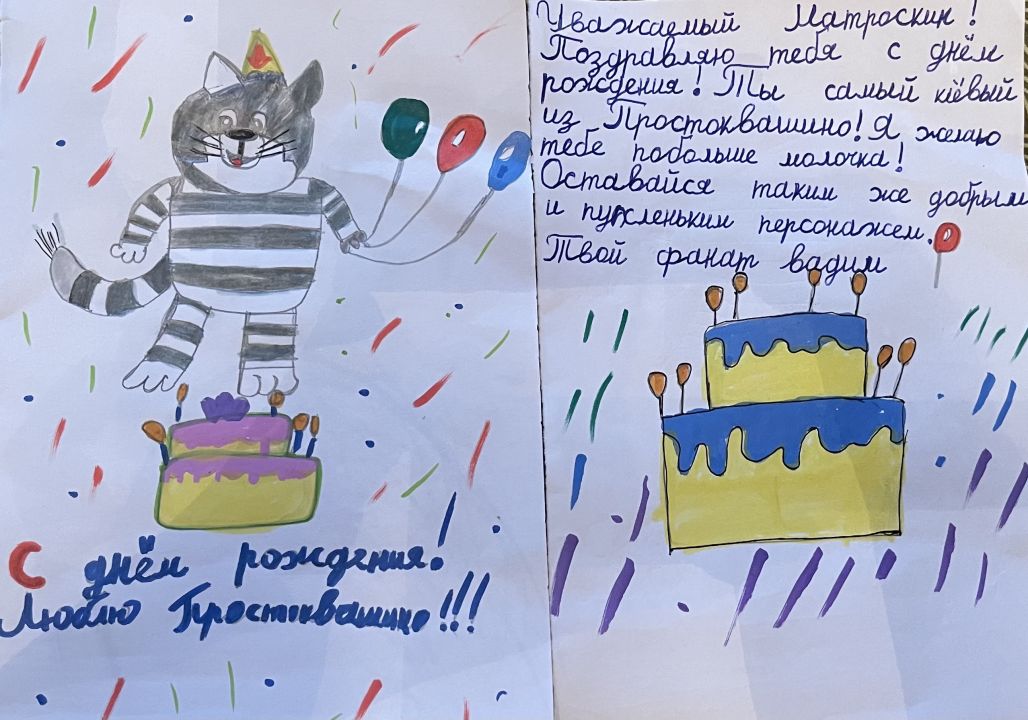 С днём рождения!
Люблю Простоквашино!!!
Уважаемый Матроскин!
Поздравляю тебя с днём
рождения! Ты самый клёвый
из Простоквашино! Я желаю
тебе побольше молочка!
Оставайся таким же добрым
и пухленьким персонажем.
Твой фанат вадим